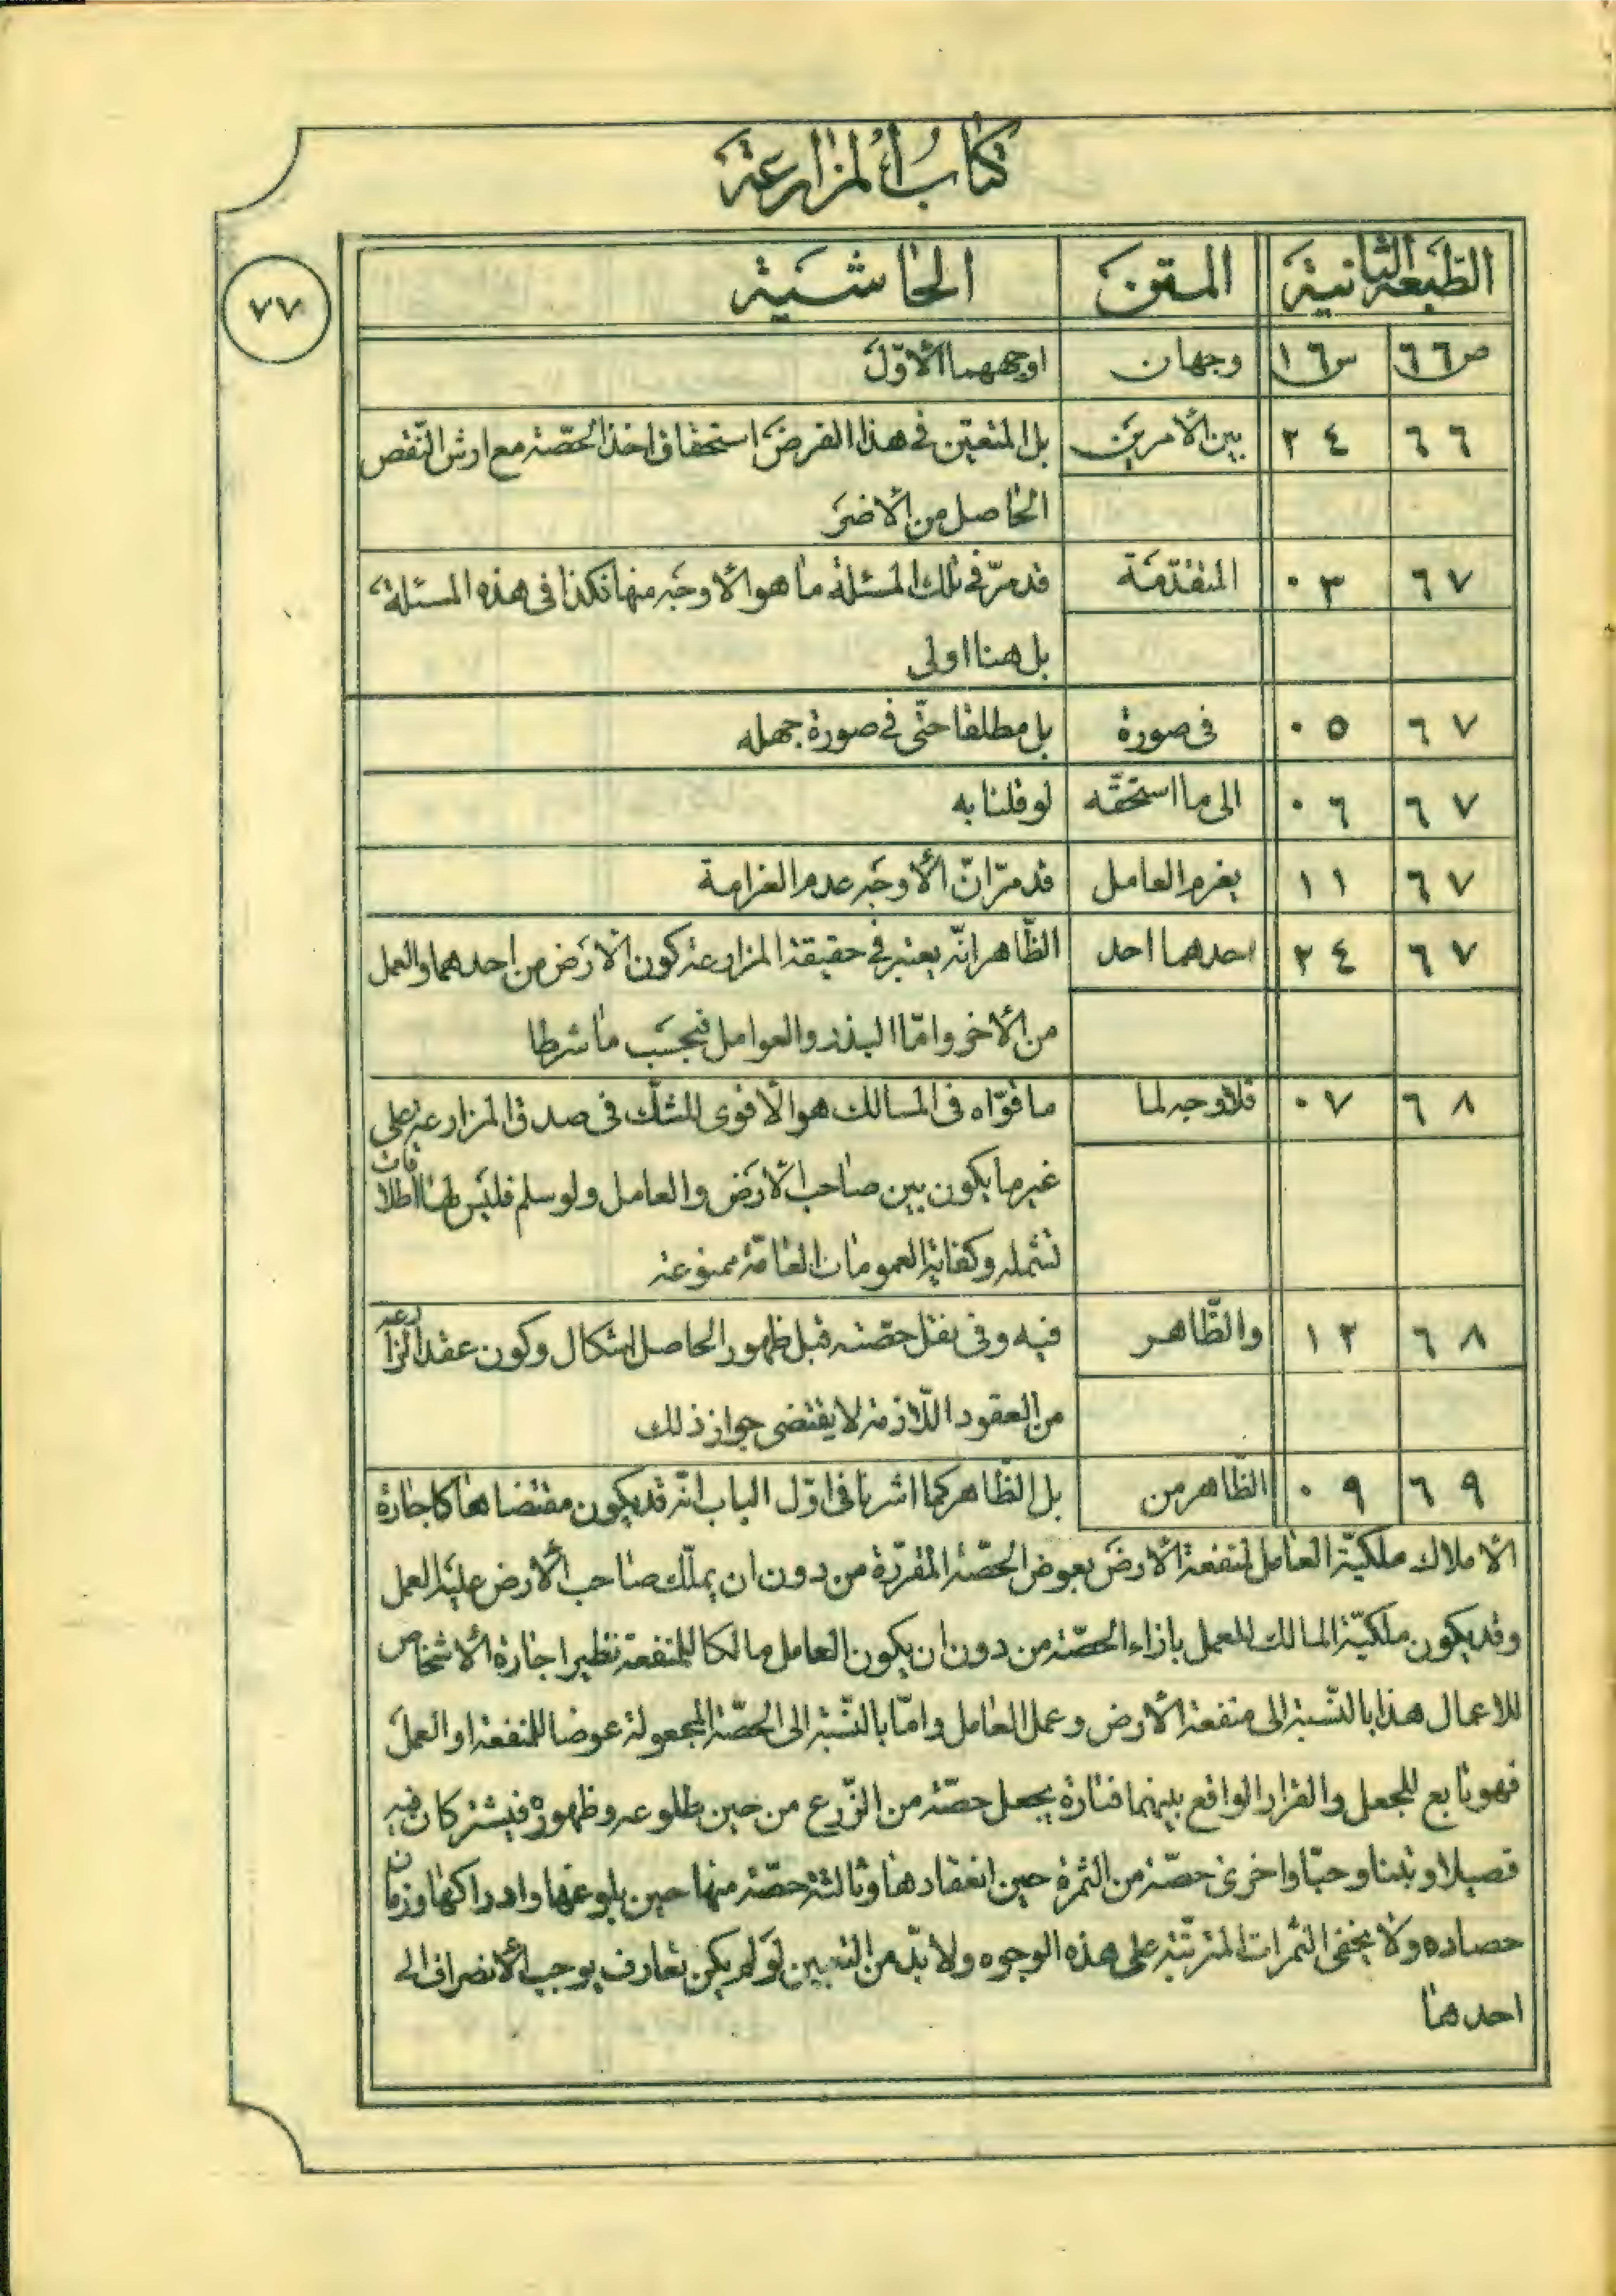 كتاب المزارعة
الطبعة الثانية المتن الحاشية
٧٧
ص٦٦ س١٦ وجهان اوجههما الأوّل
٦٦ ٢٤ بين الأمرين بل المتعيّن في هذا الفرض استحقاق اخذ الحصّة مع ارش النّقص
الحاصل من الأضر
٦٧ ٠٣ المتقدّمة قد مرّ في تلك المسئلة ما هو الأوجه منها فكذا في هذه المسئلة
بل هنا اولى
٦٧ ٠٥ في صورة بل مطلقا حتّى في صورة جهله
٦٧ ٠٦ الى ما استحقّه لو قلنا به
٦٧ ١١ يغرم العامل قد مرّ انّ الأوجه عدم الغرامة
٦٧ ٢٤ احدهما احد الظّاهر انّه يعتبر في حقيقة المزارعة كون الأرض من احدهما والعمل
من الأخر وامّا البذر والعوامل فبحسب ما شرطا
٦٨ ٠٧ فلا وجه لما ما قوّاه في المسالك هو الأقوى للشكّ في صدق المزارعة على
غير ما يكون بين صاحب الأرض والعامل ولو سلم فليس لها اطلاقات
تشمله وكفاية العمومات العامّة ممنوعة
٦٨ ١٢ والظّاهر فيه وفي نقل حصّته قبل ظهور الحاصل اشكال وكون عقد المزارعة
من العقود اللّازمة لا يقتضى جواز ذلك
٦٩ ٠٩ الظّاهر من بل الظّاهر كما اشرنا في اوّل الباب انّه قد يكون مقتضاها كاجارة
الأملاك ملكيّة العامل لمنفعة الأرض بعوض الحصّة المقرّرة من دون ان يملّك صاحب الأرض عليه العمل
وقد يكون ملكيّة المالك للعمل بازاء الحصّة من دون ان يكون العامل مالكا للمنفعة نظير اجارة الأشخاص
للاعمال هذا بالنّسبة الى منفعة الأرض وعمل العامل وامّا بالنّسبة الى الحصّة المجعولة عوضا للمنفعة او العمل
فهو تابع للجعل والقرار الواقع بينهما فتارة يجعل حصّة من الزّرع من حين طلوعه وظهوره فيشتركان فيه
قصيلا وتبنا وحبّا واخرى حصّة من الثمرة حين انعقادها وثالثة حصّة منها حين بلوغها وادراكها وزمان
حصاده ولا يخفى الثمرات المترتّبة على هذه الوجوه ولا بدّ من التعيين لو لم يكن تعارف يوجب الأنصراف الى
احدها